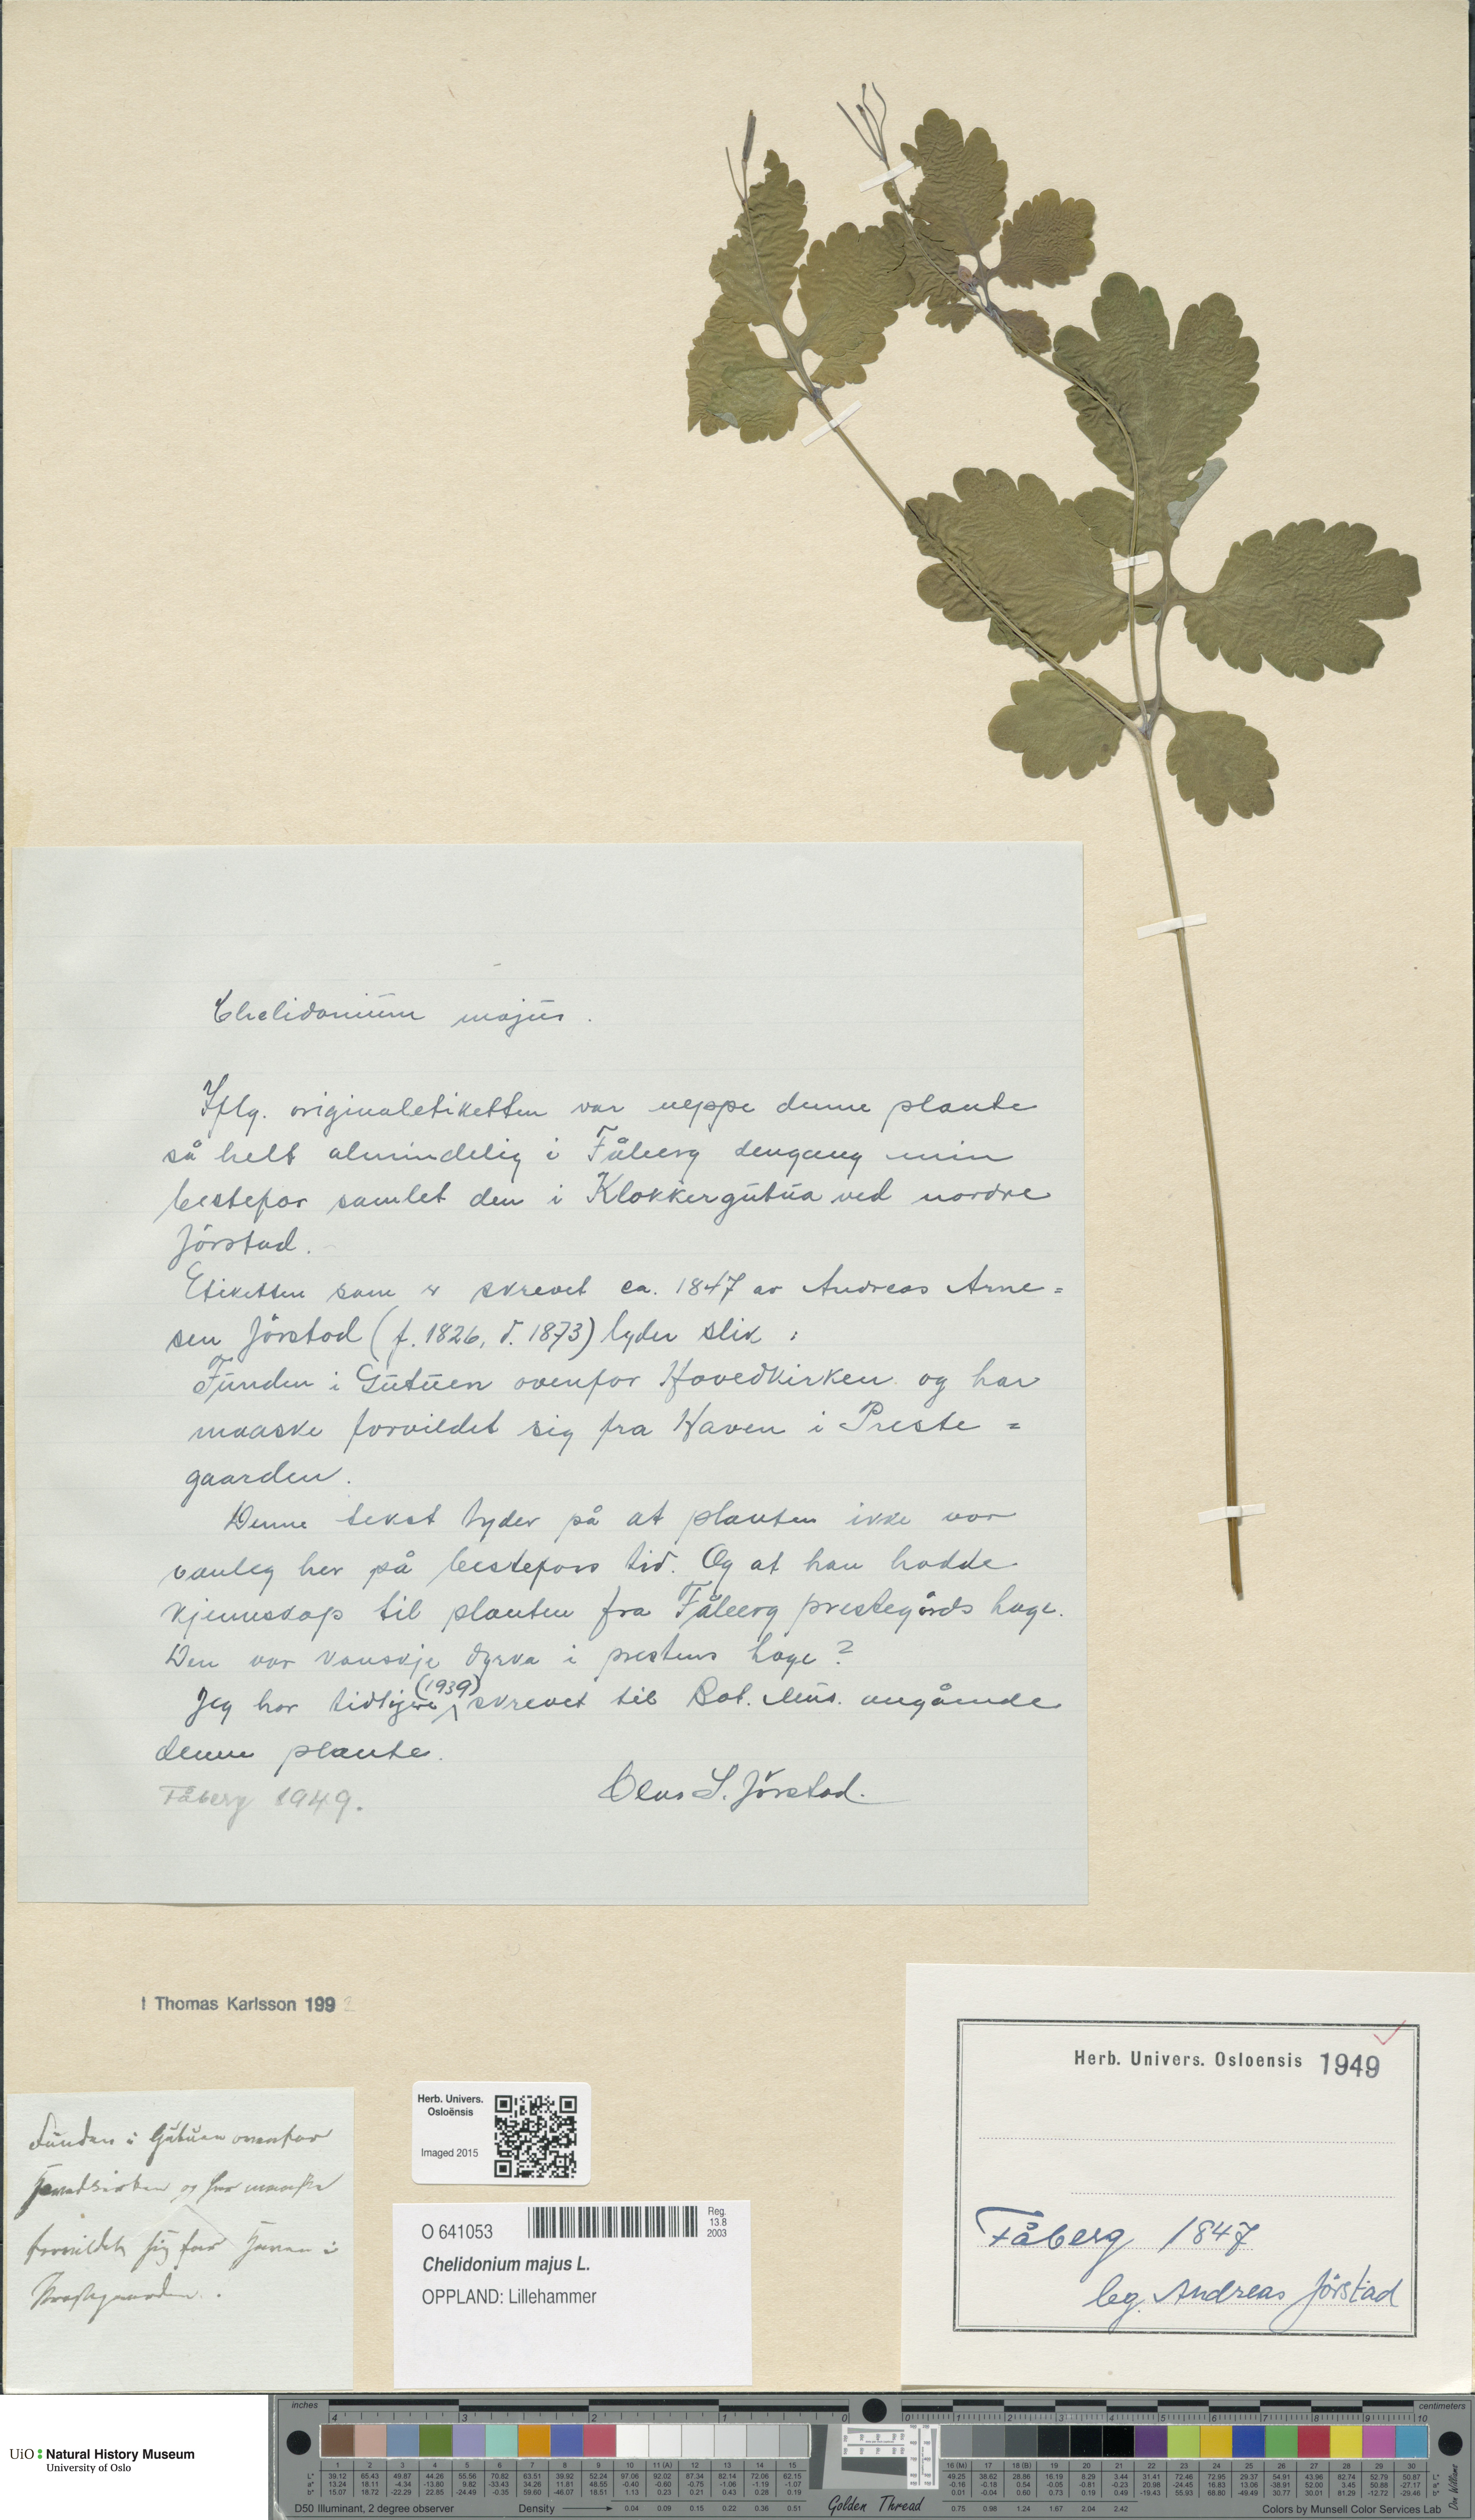 Chelidonium majus.
Iflg. originaletiketten var neppe denne plante
så helt almindelig i Fåberg dengang min
bestefar samlet den i Klokkergutua ved nordre
Jørstad.
Etiketten som er skrevet ca. 1847 av Andreas Arne=
sen Jørstad (f. 1826, d. 1873) lyder slik:
Funden i Gutuen ovenfor Hovedkirken og har
maaske forvildet sig fra Haven i Preste=
gaarden.
Denne tekst tyder på at planten ikke var
vanleg her på bestefars tid. Og at han hadde
kjennskap til planten fra Fåberg prestegårds hage.
Den var kanskje dyrka i prestens hage?
Jeg har tidligere (1939) skrevet til Bot. Mus. angående
denne plante.
Fåberg 1949.
Olaus S. Jørstad.
! Thomas Karlsson 199
Funden i Gutuen ovenfor
Hovedkirken og har maaske
forvildet sig fra Haven i
Prestegaarden.
Herb. Univers.
Osloënsis
Imaged 2015
O 641053
Reg.
13.8
2003
Chelidonium majus L.
OPPLAND: Lillehammer
Herb. Univers. Osloensis 1949
Fåberg 1847
leg. Andreas Jørstad
UiO Natural History Museum
University of Oslo
inches
centimeters
D50 Illuminant, 2 degree observer
Density
Golden Thread
Colors by Munsell Color Services Lab